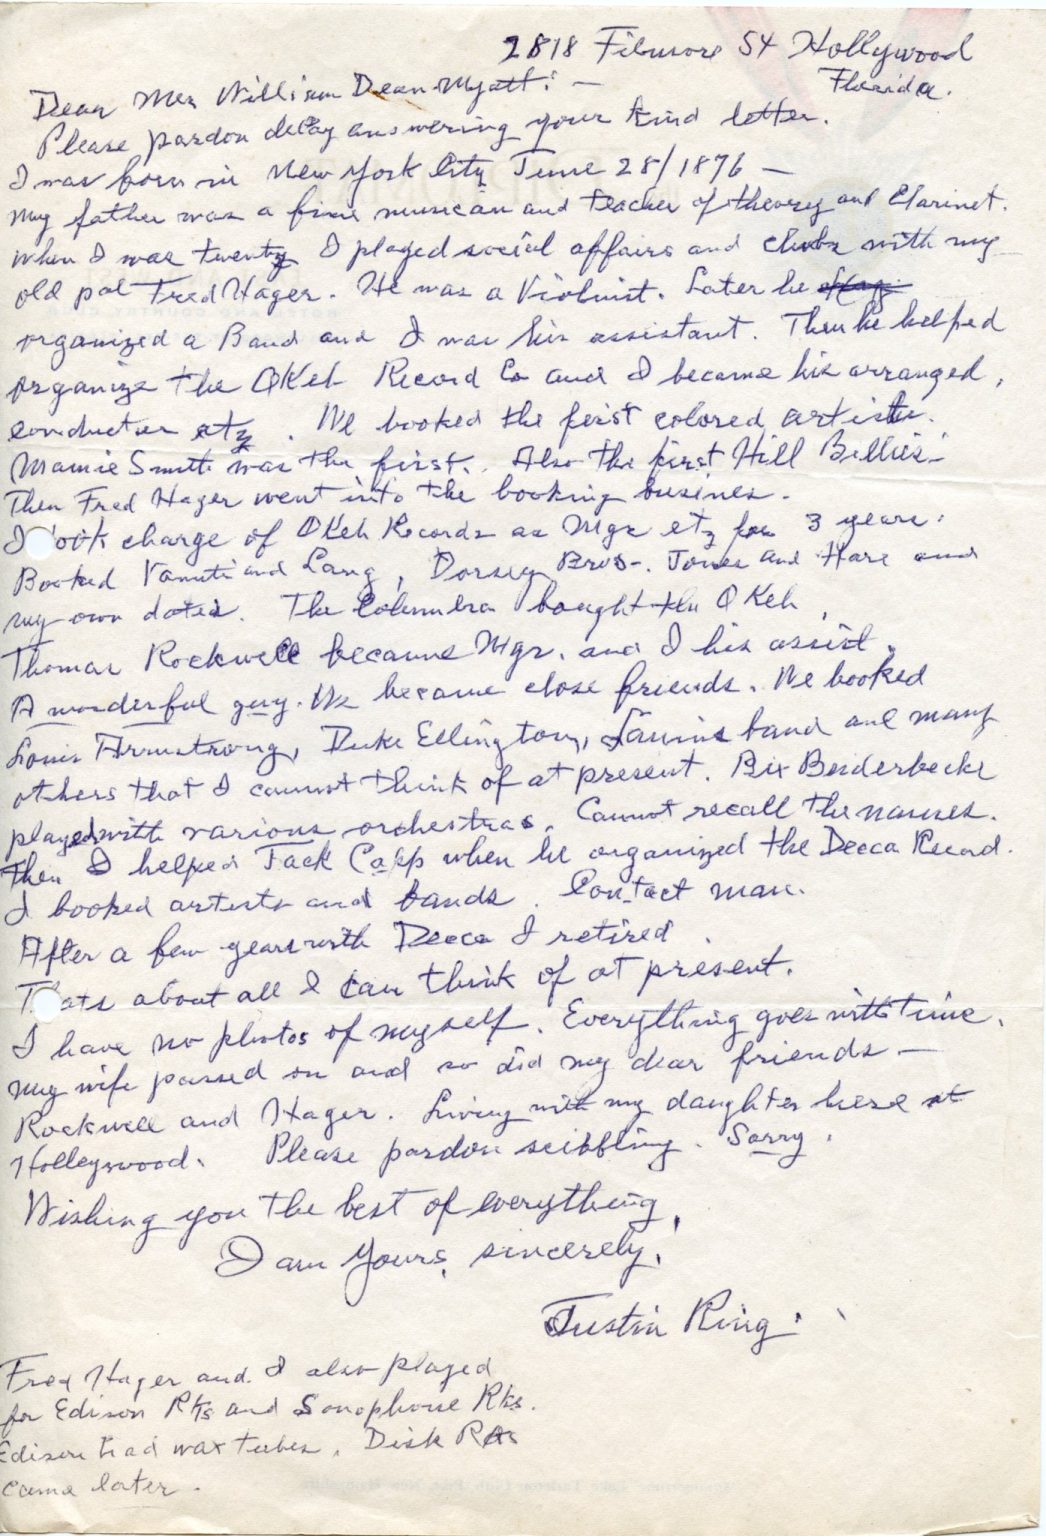 2818 Filmore St Hollywood
Florida.
Dear Mr William Dean Myatt: —
Please pardon delay answering your kind letter.
I was born in New York City June 28/1876 —
My father was a fine musican and teacher of theory and Clarinet.
When I was twenty I played social affairs and clubs with my
old pal Fred Hager. He was a Violinist. Later he
organized a Band and I was his assistant. Then he helped
organize the OKeh Record Co and I became his arranged,
conductor etz. We booked the first colored artists.
Mamie Smith was the first. Also the first Hill Billies —
Then Fred Hager went into the booking busines.
I took charge of OKeh Records as Mgr etz for 3 years.
Booked Vanuti and Lang, Dorsey Bros-. Jones and Hare and
my own dates. The Columbia bought the OKeh,
Thomas Rockwell became Mgr. and I his assist.
A wonderful guy. We became close friends. We booked
Louis Armstrong, Duke Ellington, band and many
others that I cannot think of at present. Bix Beiderbecke
played with various orchestras. Cannot recall the names.
Then I helped Jack Capp when he organized the Decca Record.
I booked artists and bands. Contact man.
After a few years with Decca I retired.
Thats about all I can think of at present.
I have no photos of myself. Everything goes with time.
My wife passed on and so did my dear friends —
Rockwell and Hager. Living with my daughter here at
Holleywood. Please pardon scibbling. Sorry.
Wishing you the best of everything,
I am Yours, sincerely,
Justin Ring.
Fred Hager and I also played
for Edison Rks and Sonophone Rks.
Edison had wax tubes. Disk Rks
came later.